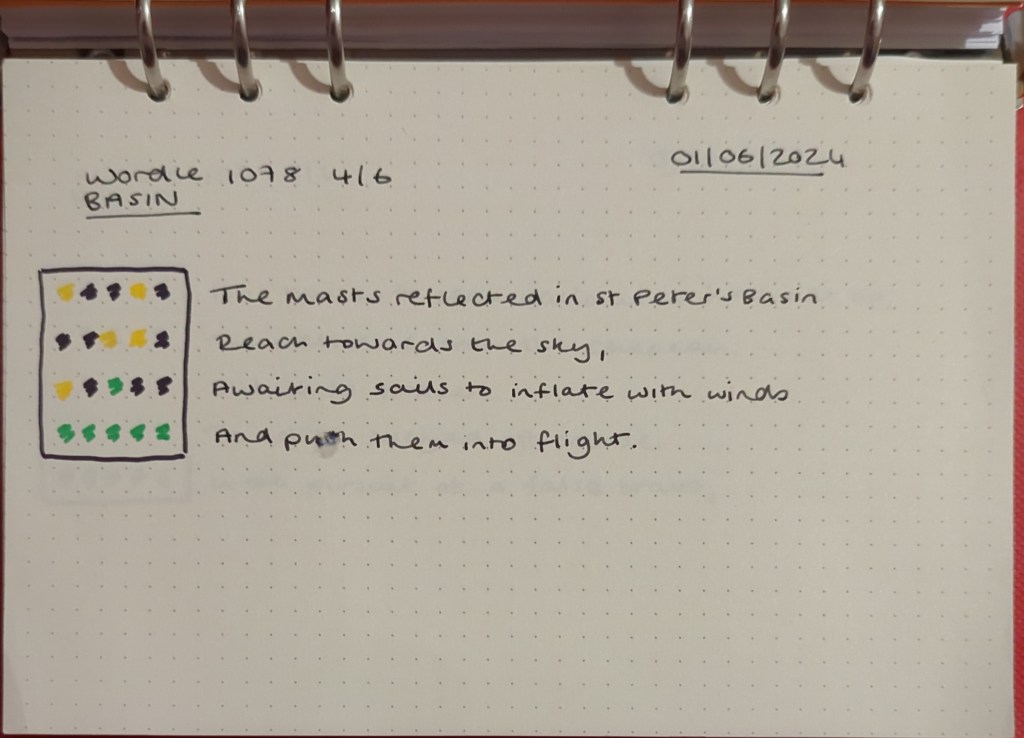 Wordle 1078 4/6
BASIN
01/06/2024
The masts reflected in St Peter's Basin
Reach towards the sky,
Awaiting sails to inflate with winds
And push them into flight.